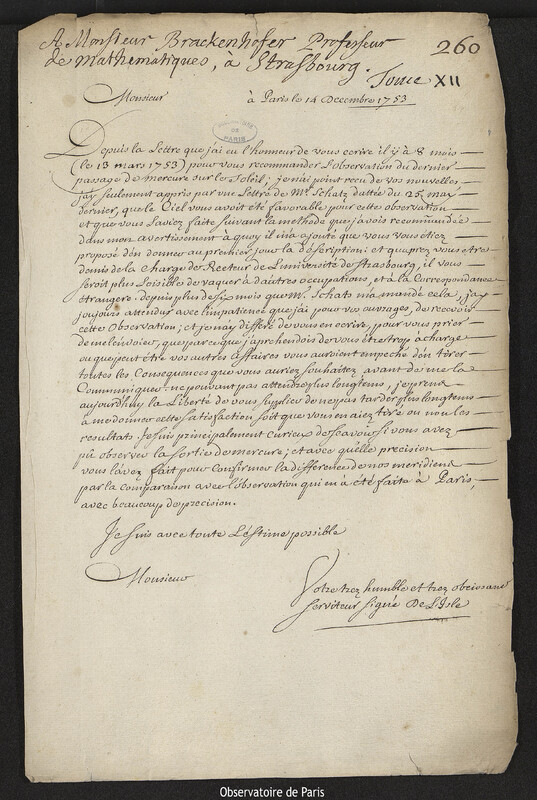 A Monsieur Brackenhofer Professeur
de Mathematiques, à Strasbourg.
260
Tome XII
Monsieur
à Paris le 14 Decembre 1753
PARIS
Depuis la Lettre que j'ai eu l'honneur de vous ecrire il y à 8 mois
(le 13 mars 1753) pour vous recommander l'observation du dernier
passage de mercure sur le Soleil; je n'ai point recu de vos nouvelles,
j'ay seulement appris par une Lettre de Mr. Schatz dattée du 25 mai
dernier, que le Ciel vous avoit été favorable pour cette observation
et que vous l'aviez faite suivant la methode que j'avois recommandée
dans mon avertissement à quoy il m'a ajouté que vous vous étiez
proposé d'en donner au premier jour la déscription: et qu'aprez vous etre
demis de la Charge de Recteur de L'université de Strasbourg, il vous
seroit plus Loisible de vaquer à d'autres occupations, et à la Correspondance
étrangere. depuis plus de six mois que Mr. Schats m'a mandé cela, j'ay
toujours attendu avec l'impatience que j'ai pour vos ouvrages, de recevoir
cette Observation; et je n'ay differé de vous en ecrire, pour vous prier
de me l'envoier, que parce que j'apprehendois de vous être trop à charge
ou que peut être vos autres affaires vous auroient empeché d'en tirer
toutes les Consequences que vous auriez souhaitez avant de me la
Communiquer. ne pouvant pas attendre plus longtems, je prens
aujourd'huy la Liberté de vous supplier de ne pas tarder plus longtems
à me donner cette satisfaction soit que vous en aiez tiré ou non les
resultats. Je suis principalement curieux de scavoir si vous avez
pû observer la sortie de mercure; et avec quelle precision
vous l'avez fait pour confirmer la difference de nos meridiens
par la comparaison avec l'observation qui en à été faite à Paris,
avec beaucoup de precision.
Je suis avec toute L'éstime possible
Monsieur
Votre trez humble et trez obeissant
serviteur signé De L'Isle
Observatoire de Paris